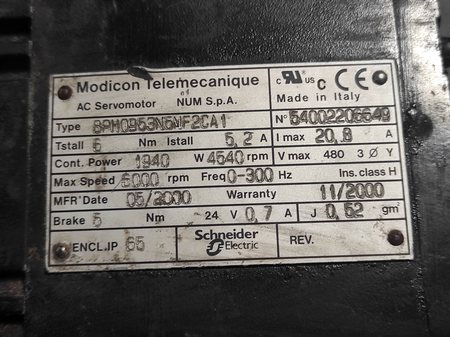 Modicon Telemecanique
AC Servomotor of NUM S.p.A.
c RU us CE
Made in Italy
Type BPH0953N5MF2CA1 N° 54002206649
Tstall 5 Nm Istall 5,2 A I max 20,8 A
Cont. Power 1940 W 4540 rpm V max 480 3 Ø Y
Max Speed 6000 rpm Freq 0-300 Hz Ins. class H
MFR Date 05/2000 Warranty 11/2000
Brake 5 Nm 24 V 0,7 A J 0,52 gm²
ENCL.IP 65 Schneider Electric REV.